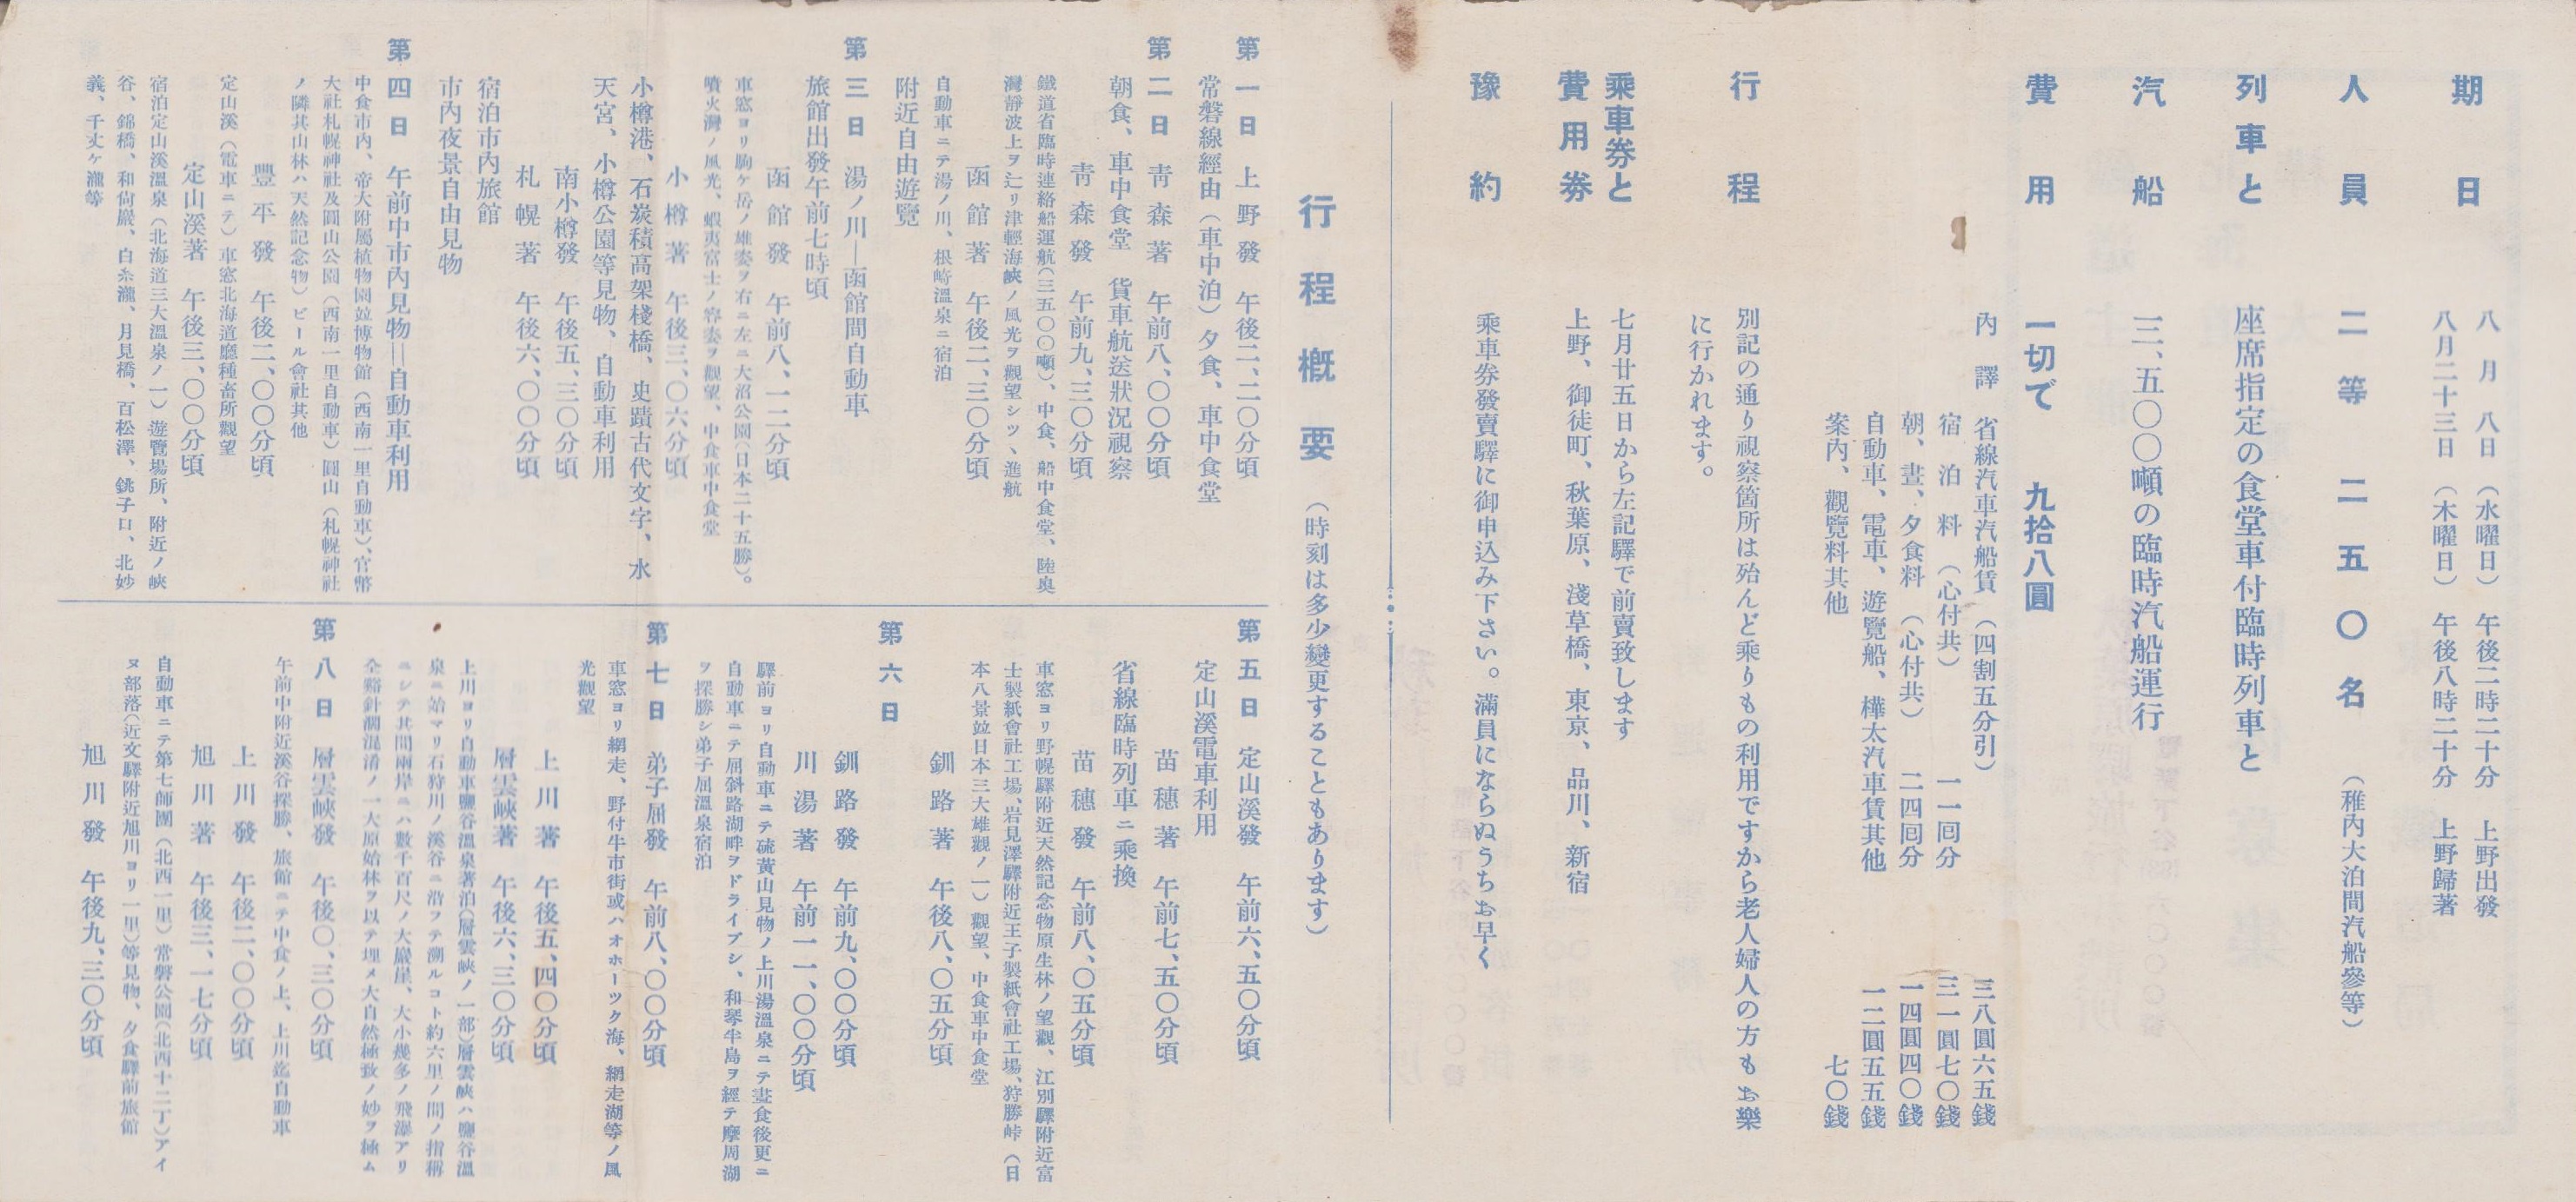 期日
八月八日（水曜日）午後二時二十分　上野出發
八月二十三日（木曜日）午後八時二十分　上野歸著
人員
二等　二五〇名（稚內大泊間汽船參等）
列車と
座席指定の食堂車付臨時列車と
汽船
三、五〇〇噸の臨時汽船運行
費用
一切で　九拾八圓
內譯　省線汽車汽船賃（四割五分引）　三八圓六五錢
宿泊料（心付共）　一一回分　三一圓七〇錢
朝、晝、夕食料（心付共）　二四回分　一四圓四〇錢
自動車、電車、遊覽船、樺太汽車賃其他　一二圓五五錢
案內、觀覽料其他　七〇錢
行程
別記の通り視察箇所は殆んど乘りもの利用ですから老人婦人の方もお樂
に行かれます。
乘車券と
費用券
七月廿五日から左記驛で前賣致します
上野、御徒町、秋葉原、淺草橋、東京、品川、新宿
豫約
乘車券發賣驛に御申込み下さい。滿員にならぬうちお早く
行程概要（時刻は多少變更することもあります）
第一日　上野發　午後二、二〇分頃
常磐線經由（車中泊）夕食、車中食堂
第二日　靑森著　午前八、〇〇分頃
朝食、車中食堂　貨車航送狀況視察
靑森發　午前九、三〇分頃
鐵道省臨時連絡船運航（三五〇〇噸）、中食、船中食堂、陸奥
灣靜波上ヲ辷リ津輕海峽ノ風光ヲ觀望シツヽ進航
函館著　午後二、三〇分頃
自動車ニテ湯ノ川、根崎溫泉ニ宿泊
附近自由遊覽
第三日　湯ノ川—函館間自動車
旅館出發午前七時頃
函館發　午前八、一二分頃
車窓ヨリ駒ケ岳ノ雄姿ヲ右ニ左ニ大沼公園（日本二十五勝）。
噴火灣ノ風光、蝦夷富士ノ容姿ヲ觀望、中食車中食堂
小樽著　午後三、〇六分頃
小樽港、石炭積高架棧橋、史蹟古代文字、水
天宮、小樽公園等見物、自動車利用
南小樽發　午後五、三〇分頃
札幌著　午後六、〇〇分頃
宿泊市內旅館
市內夜景自由見物
第四日　午前中市內見物—自動車利用
中食市內、帝大附屬植物園竝博物館（西南一里自動車）、官幣
大社札幌神社及圓山公園（西南一里自動車）圓山（札幌神社
ノ隣其山林ハ天然記念物）ビール會社其他
豐平發　午後二、〇〇分頃
定山溪（電車ニテ）車窓北海道廳種畜所觀望
定山溪著　午後三、〇〇分頃
宿泊定山溪溫泉（北海道三大溫泉ノ一）遊覽場所、附近ノ峽
谷、錦橋、和尙巖、白糸瀧、月見橋、百松澤、銚子口、北妙
義、千丈ケ瀧等
第五日　定山溪發　午前六、五〇分頃
定山溪電車利用
苗穗著　午前七、五〇分頃
省線臨時列車ニ乘換
苗穗發　午前八、〇五分頃
車窓ヨリ野幌驛附近天然記念物原生林ノ望觀、江別驛附近富
士製紙會社工場、岩見澤驛附近王子製紙會社工場、狩勝峠（日
本八景竝日本三大雄觀ノ一）觀望、中食車中食堂
釧路著　午後八、〇五分頃
第六日
釧路發　午前九、〇〇分頃
川湯著　午前一一、〇〇分頃
驛前ヨリ自動車ニテ硫黃山見物ノ上川湯溫泉ニテ晝食後更ニ
自動車ニテ屈斜路湖畔ヲドライブシ、和琴半島ヲ經テ摩周湖
ヲ探勝シ弟子屈溫泉宿泊
第七日　弟子屈發　午前八、〇〇分頃
車窓ヨリ網走、野付牛市街或ハオホーツク海、網走湖等ノ風
光觀望
上川著　午後五、四〇分頃
層雲峽著　午後六、三〇分頃
上川ヨリ自動車鹽谷溫泉著泊（層雲峽ノ一部）層雲峽ハ鹽谷溫
泉ニ始マリ石狩川ノ溪谷ニ沿フテ溯ルコト約六里ノ間ノ指稱
ニシテ其間兩岸ニハ數千百尺ノ大巖崖、大小幾多ノ飛瀑アリ
全谿針濶混淆ノ一大原始林ヲ以テ埋メ大自然極致ノ妙ヲ極ム
第八日　層雲峽發　午後〇、三〇分頃
午前中附近溪谷探勝、旅館ニテ中食ノ上、上川迄自動車
上川發　午後二、〇〇分頃
旭川著　午後三、一七分頃
自動車ニテ第七師團（北西一里）常磐公園（北西十二丁）アイ
ヌ部落（近文驛附近旭川ヨリ一里）等見物、夕食驛前旅館
旭川發　午後九、三〇分頃